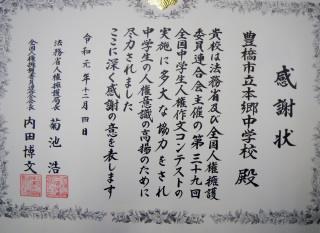 感謝状
豊橋市立本郷中学校 殿
貴校は法務省及び全国人権擁護
委員連合会主催の第三十九回
全国中学生人権作文コンテストの
実施に多大な協力をされ
中学生の人権意識の高揚のために
尽力されました
ここに深く感謝の意を表します
令和元年十二月四日
法務省人権擁護局長 菊池 浩
全国人権擁護委員連合会長 内田博文